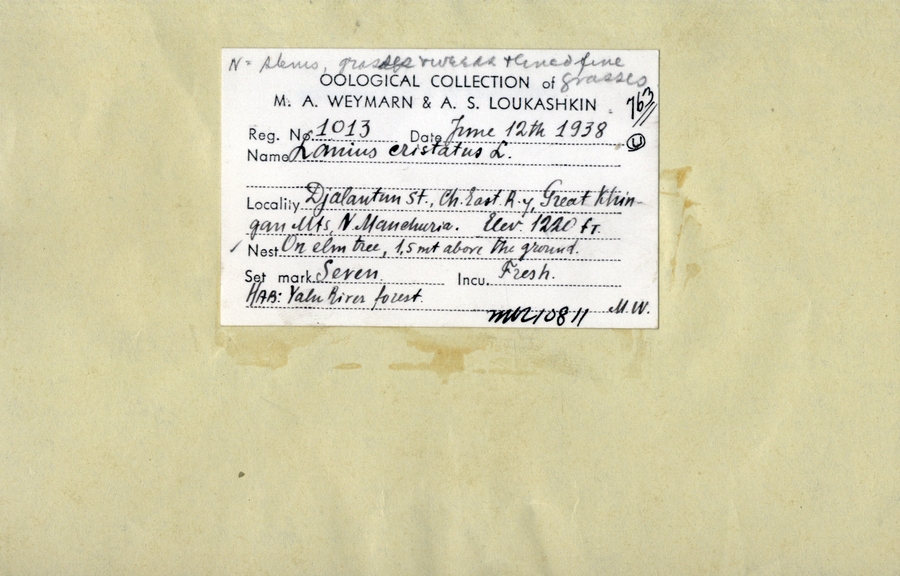 N= stems, grasses & weeds & lined fine
grasses
OOLOGICAL COLLECTION of
M. A. WEYMARN & A. S. LOUKASHKIN
763/11
Reg. No. 1013 Date June 12th 1938
Name Lanius cristatus L.
Locality Djalantun St., Ch. East. R-y Great Khin-
gan Mts, N. Manchuria. Elev. 1220 ft.
Nest On elm tree, 1,5 mt above the ground.
Set mark Seven. Incu. Fresh.
HAB: Yalu River forest.
M.W.